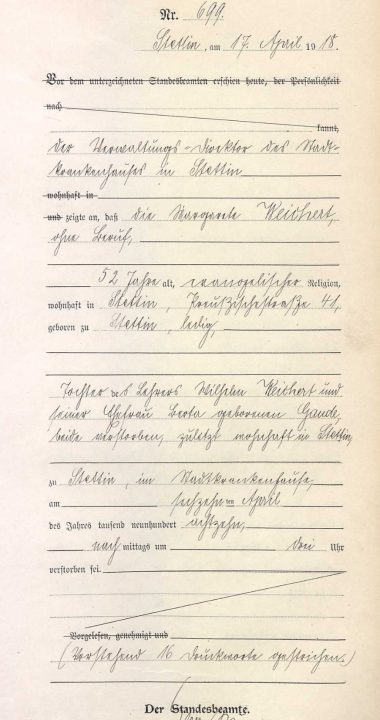 Nr. 699.
Stettin, am 17. April 1918.
Vor dem unterzeichneten Standesbeamten erschien heute, der Persönlichkeit
nach
kannt,
der Verwaltungs-Direktor des Stadt-
krankenhauses in Stettin
wohnhaft in
und zeigte an, daß die Margarete Weichert,
ohne Beruf,
52 Jahre alt, evangelischer Religion,
wohnhaft in Stettin, Preußischestraße 41,
geboren zu Stettin, ledig,
Tochter des Lehrers Wilhelm Weichert und
seiner Ehefrau Berta geborenen Gande,
beide verstorben, zuletzt wohnhaft in Stettin,
zu Stettin, im Stadtkrankenhause,
am sechzehnten April
des Jahres tausend neunhundert achtzehn,
nachmittags um drei Uhr
verstorben sei.
Vorgelesen, genehmigt und
(Vorstehend 16 Druckworte gestrichen.)
Der Standesbeamte.